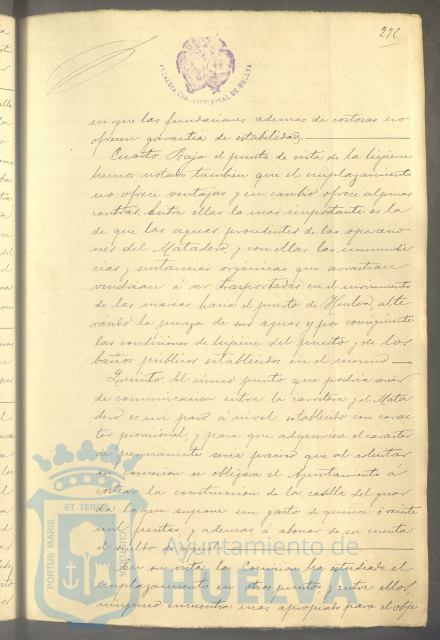 276
ALCALDIA CONSTITUCIONAL DE HUELVA
en que las fundaciones ademas de costosas no
ofrecen garantía de estabilidad.
Cuarto. Bajo el punto de vista de la higiene
hemos notado tambien que el emplazamiento
no ofrece ventajas y en cambio ofrece algunas
contras. Entre ellas la mas importante es la
de que las aguas procedentes de las operacio-
nes del Matadero, y con ellas las inmundi-
cias y sustancias orgánicas que arrastran
vendrian á ser trasportadas en el movimiento
de las mareas hacia el puerto de Huelva, alte-
rando la pureza de sus aguas y por consiguiente
las condiciones de higiene del puerto y de los
baños publicos establecidos en el mismo
Quinto. El unico punto que podria servir
de comunicacion entre la carretera y el Mata
dero es un paso á nivel establecido con carac
ter provisional y para que adquiriese el caracter
de permanente seria preciso que al solicitar
su concesion se obligara el Ayuntamiento á
costear la construccion de la casilla del guar
da lo que supone un gasto de quince á veinte
mil pesetas, y ademas á abonar de su cuenta
el sueldo de
En su vista la Comision ha estudiado el
emplazamiento en otros puntos y entre ellos,
ninguno encuentra mas apropiado para el obje
PORTUS MARIS ET TERRAE CUSTODIA
Ayuntamiento de
HUELVA